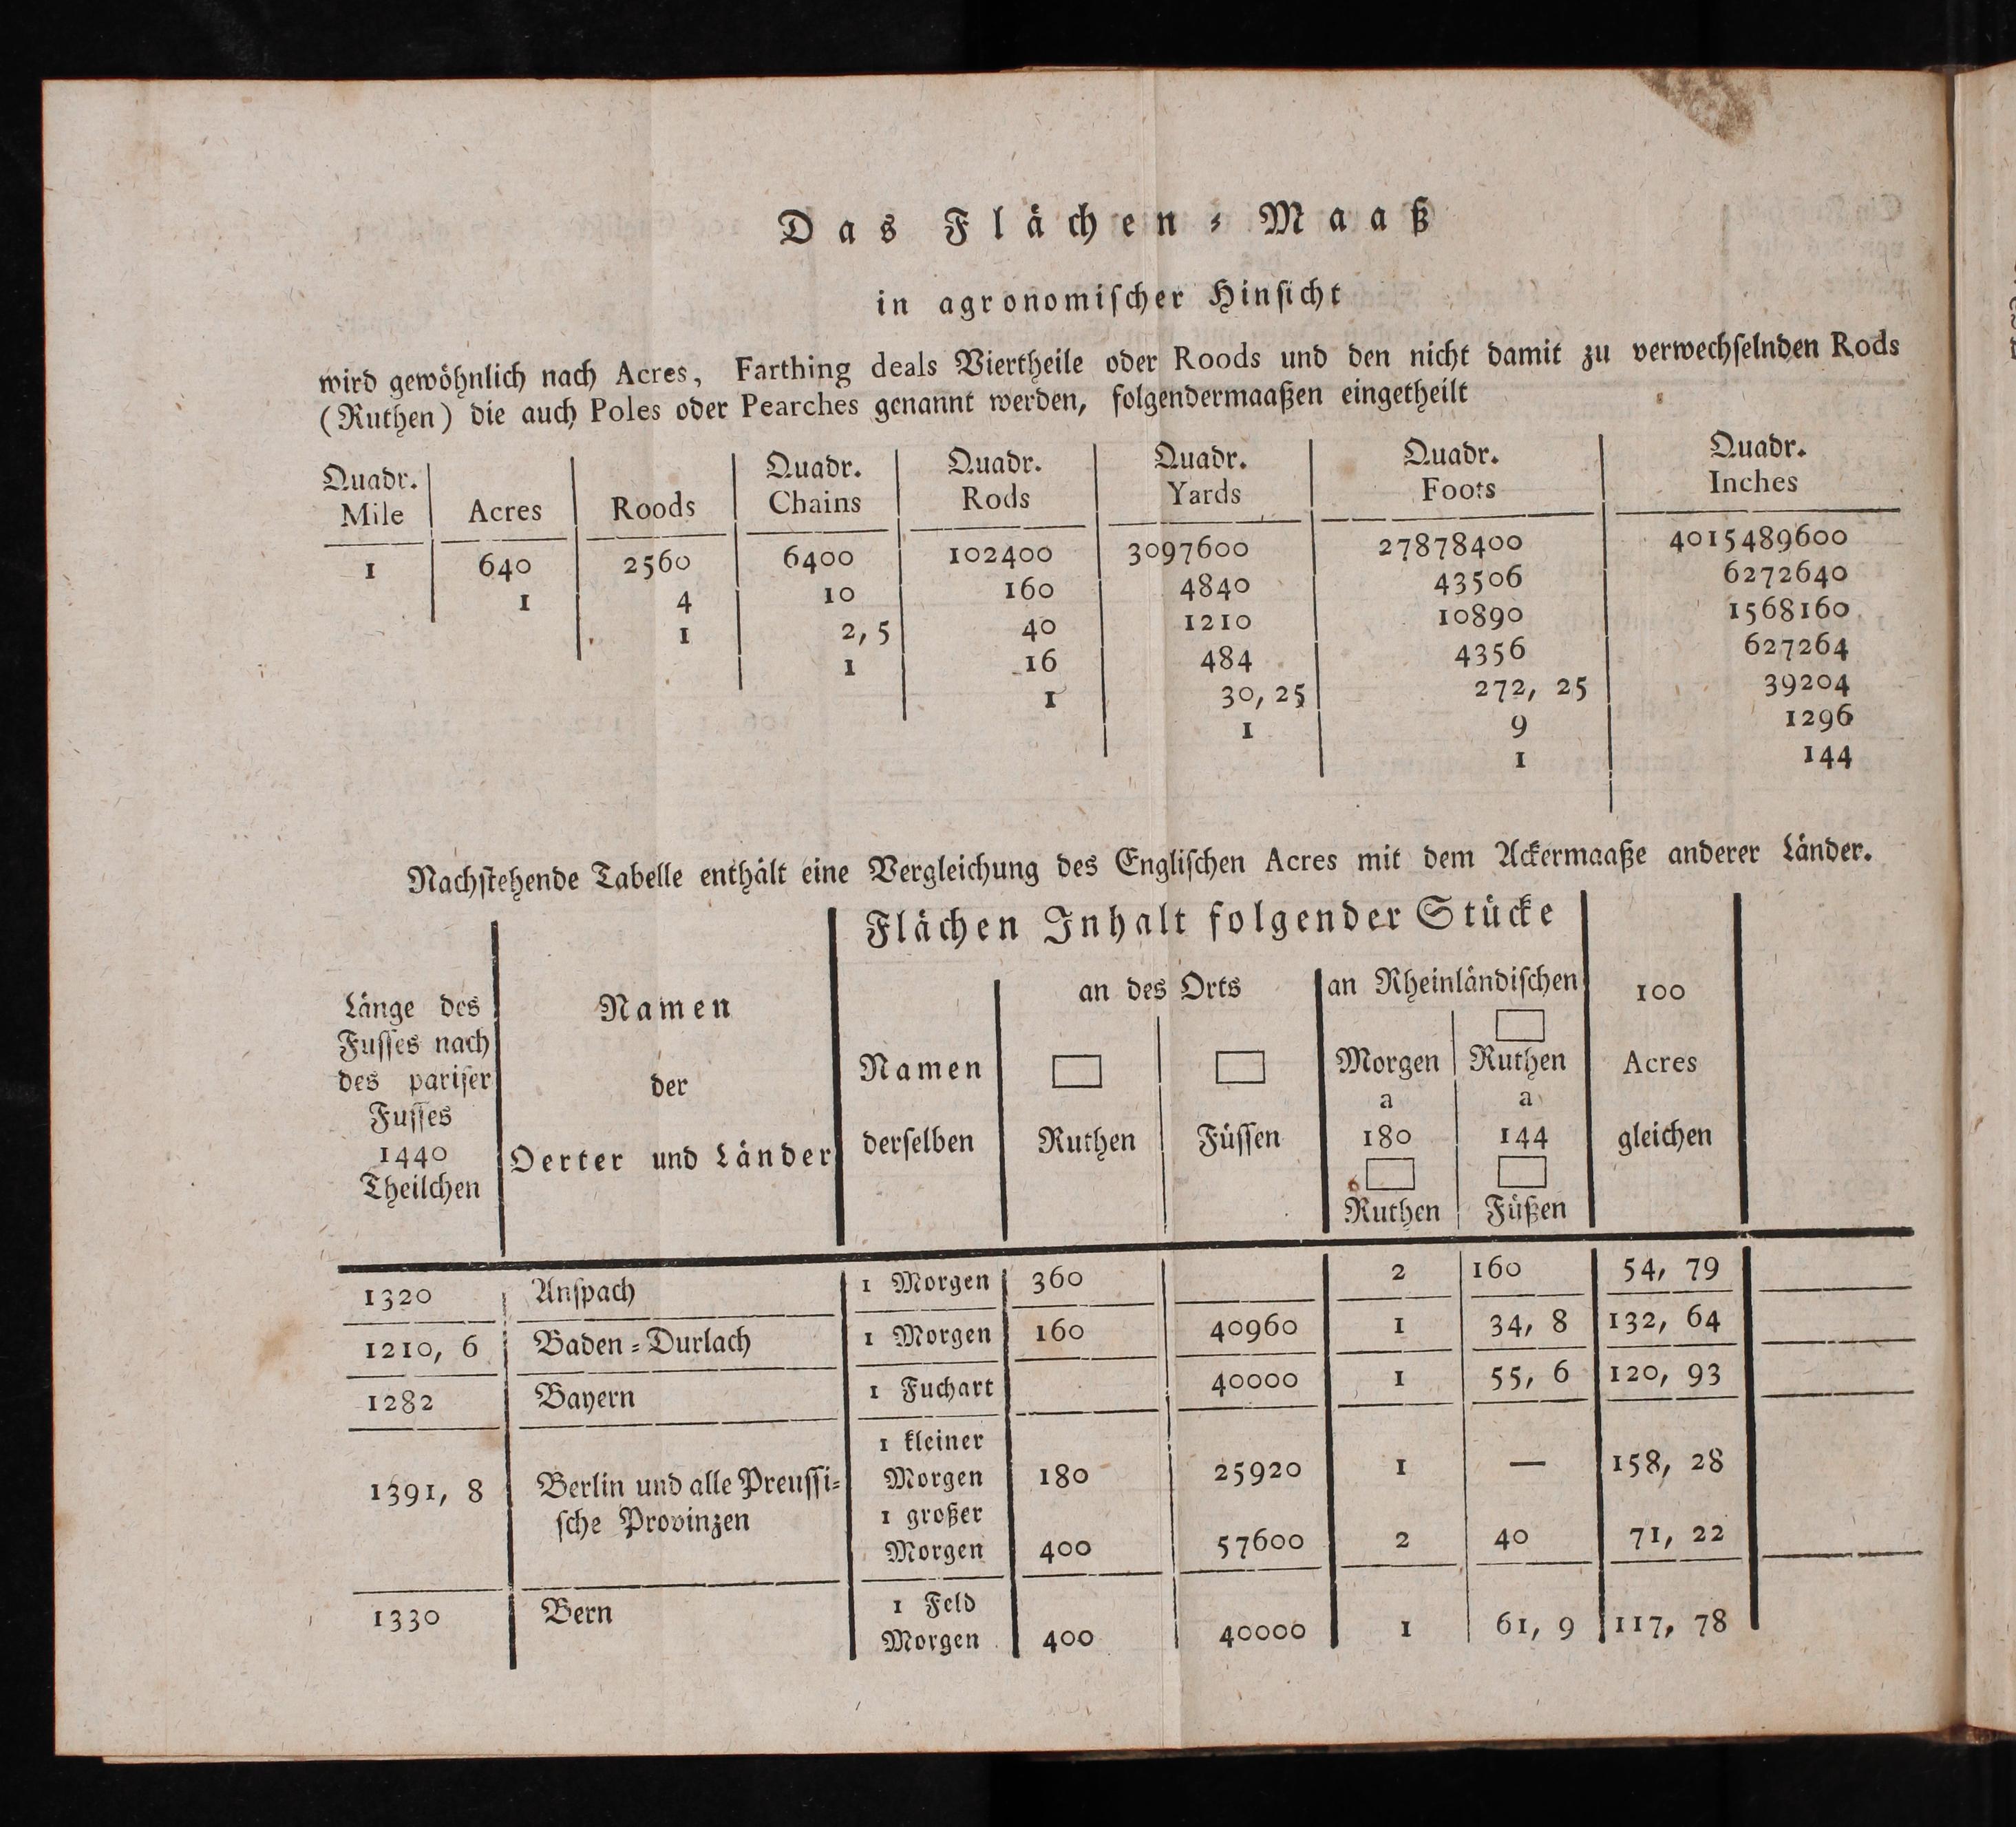 Das Flächen-Maaß
in agronomischer Hinsicht
wird gewöhnlich nach Acres, Farthing deals Viertheile oder Roods und den nicht damit zu verwechselnden Rods
(Ruthen) die auch Poles oder Pearches genannt werden, folgendermaaßen eingetheilt
Quadr. Mile | Acres | Roods | Quadr. Chains | Quadr. Rods | Quadr. Yards | Quadr. Foots | Quadr. Inches
1 | 640 | 2560 | 6400 | 102400 | 3097600 | 27878400 | 4015489600
1 | 4 | 10 | 160 | 4840 | 43506 | 6272640
1 | 2, 5 | 40 | 1210 | 10890 | 1568160
1 | 16 | 484 | 4356 | 627264
1 | 30, 25 | 272, 25 | 39204
1 | 9 | 1296
1 | 144
Nachstehende Tabelle enthält eine Vergleichung des Englischen Acres mit dem Ackermaaße anderer Länder.
Flächen Inhalt folgender Stücke
Länge des
Fusses nach
des pariser
Fusses
1440
Theilchen
Namen
der
Oerter und Länder
Namen
derselben
an des Orts
□
Ruthen
□
Füssen
an Rheinländischen
Morgen
a
180
□
Ruthen
□
Ruthen
a
144
□
Füßen
100
Acres
gleichen
1320 | Anspach | 1 Morgen | 360 | | 2 | 160 | 54, 79
1210, 6 | Baden-Durlach | 1 Morgen | 160 | 40960 | 1 | 34, 8 | 132, 64
1282 | Bayern | 1 Fuchart | | 40000 | 1 | 55, 6 | 120, 93
1 kleiner
1391, 8 | Berlin und alle Preussi- | Morgen | 180 | 25920 | 1 | — | 158, 28
sche Provinzen | 1 großer
Morgen | 400 | 57600 | 2 | 40 | 71, 22
1330 | Bern | 1 Feld
Morgen | 400 | 40000 | 1 | 61, 9 | 117, 78